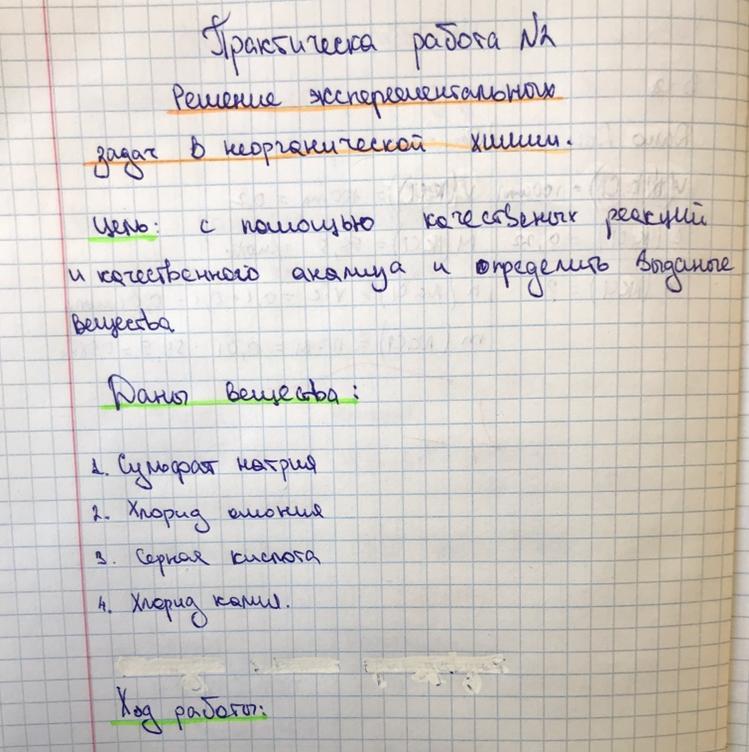 Практическа работа №2
Решение эксперементальных
задач в неорганической химии.
Цель: с помощью качественых реакций
и качественного анализа и определить выданые
вещества
Даны вещества:
1. Сульфат натрия
2. Хлорид амония
3. Серная кислота
4. Хлорид калия.
Ход работы: